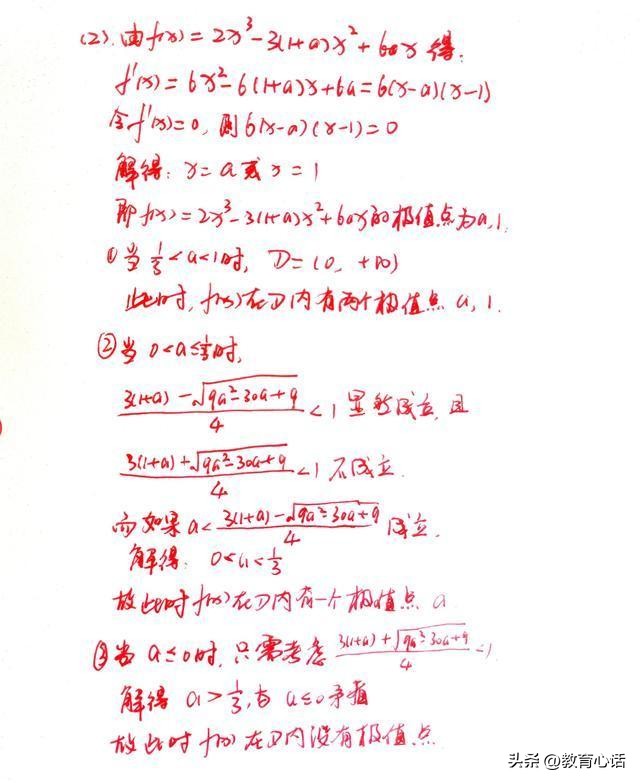 (2).由f(x)=2x³-3(1+a)x²+6ax得:
f'(x)=6x²-6(1+a)x+6a=6(x-a)(x-1)
令f'(x)=0,则6(x-a)(x-1)=0
解得:x=a或x=1
即f(x)=2x³-3(1+a)x²+6ax的极值点为a,1.
①当1/3<a<1时,D=(0,+∞)
此时,f(x)在D内有两个极值点a,1.
②当0<a≤1/3时,
(3(1+a)-√(9a²-30a+9))/4<1显然成立,且
(3(1+a)+√(9a²-30a+9))/4<1不成立.
而如果a<(3(1+a)-√(9a²-30a+9))/4成立.
解得:0<a<1/3
故此时f(x)在D内有一个极值点a
③当a≤0时,只需考虑(3(1+a)+√(9a²-30a+9))/4<1
解得a>1/3,与a≤0矛盾
故此时f(x)在D内没有极值点.
头条@教育心话